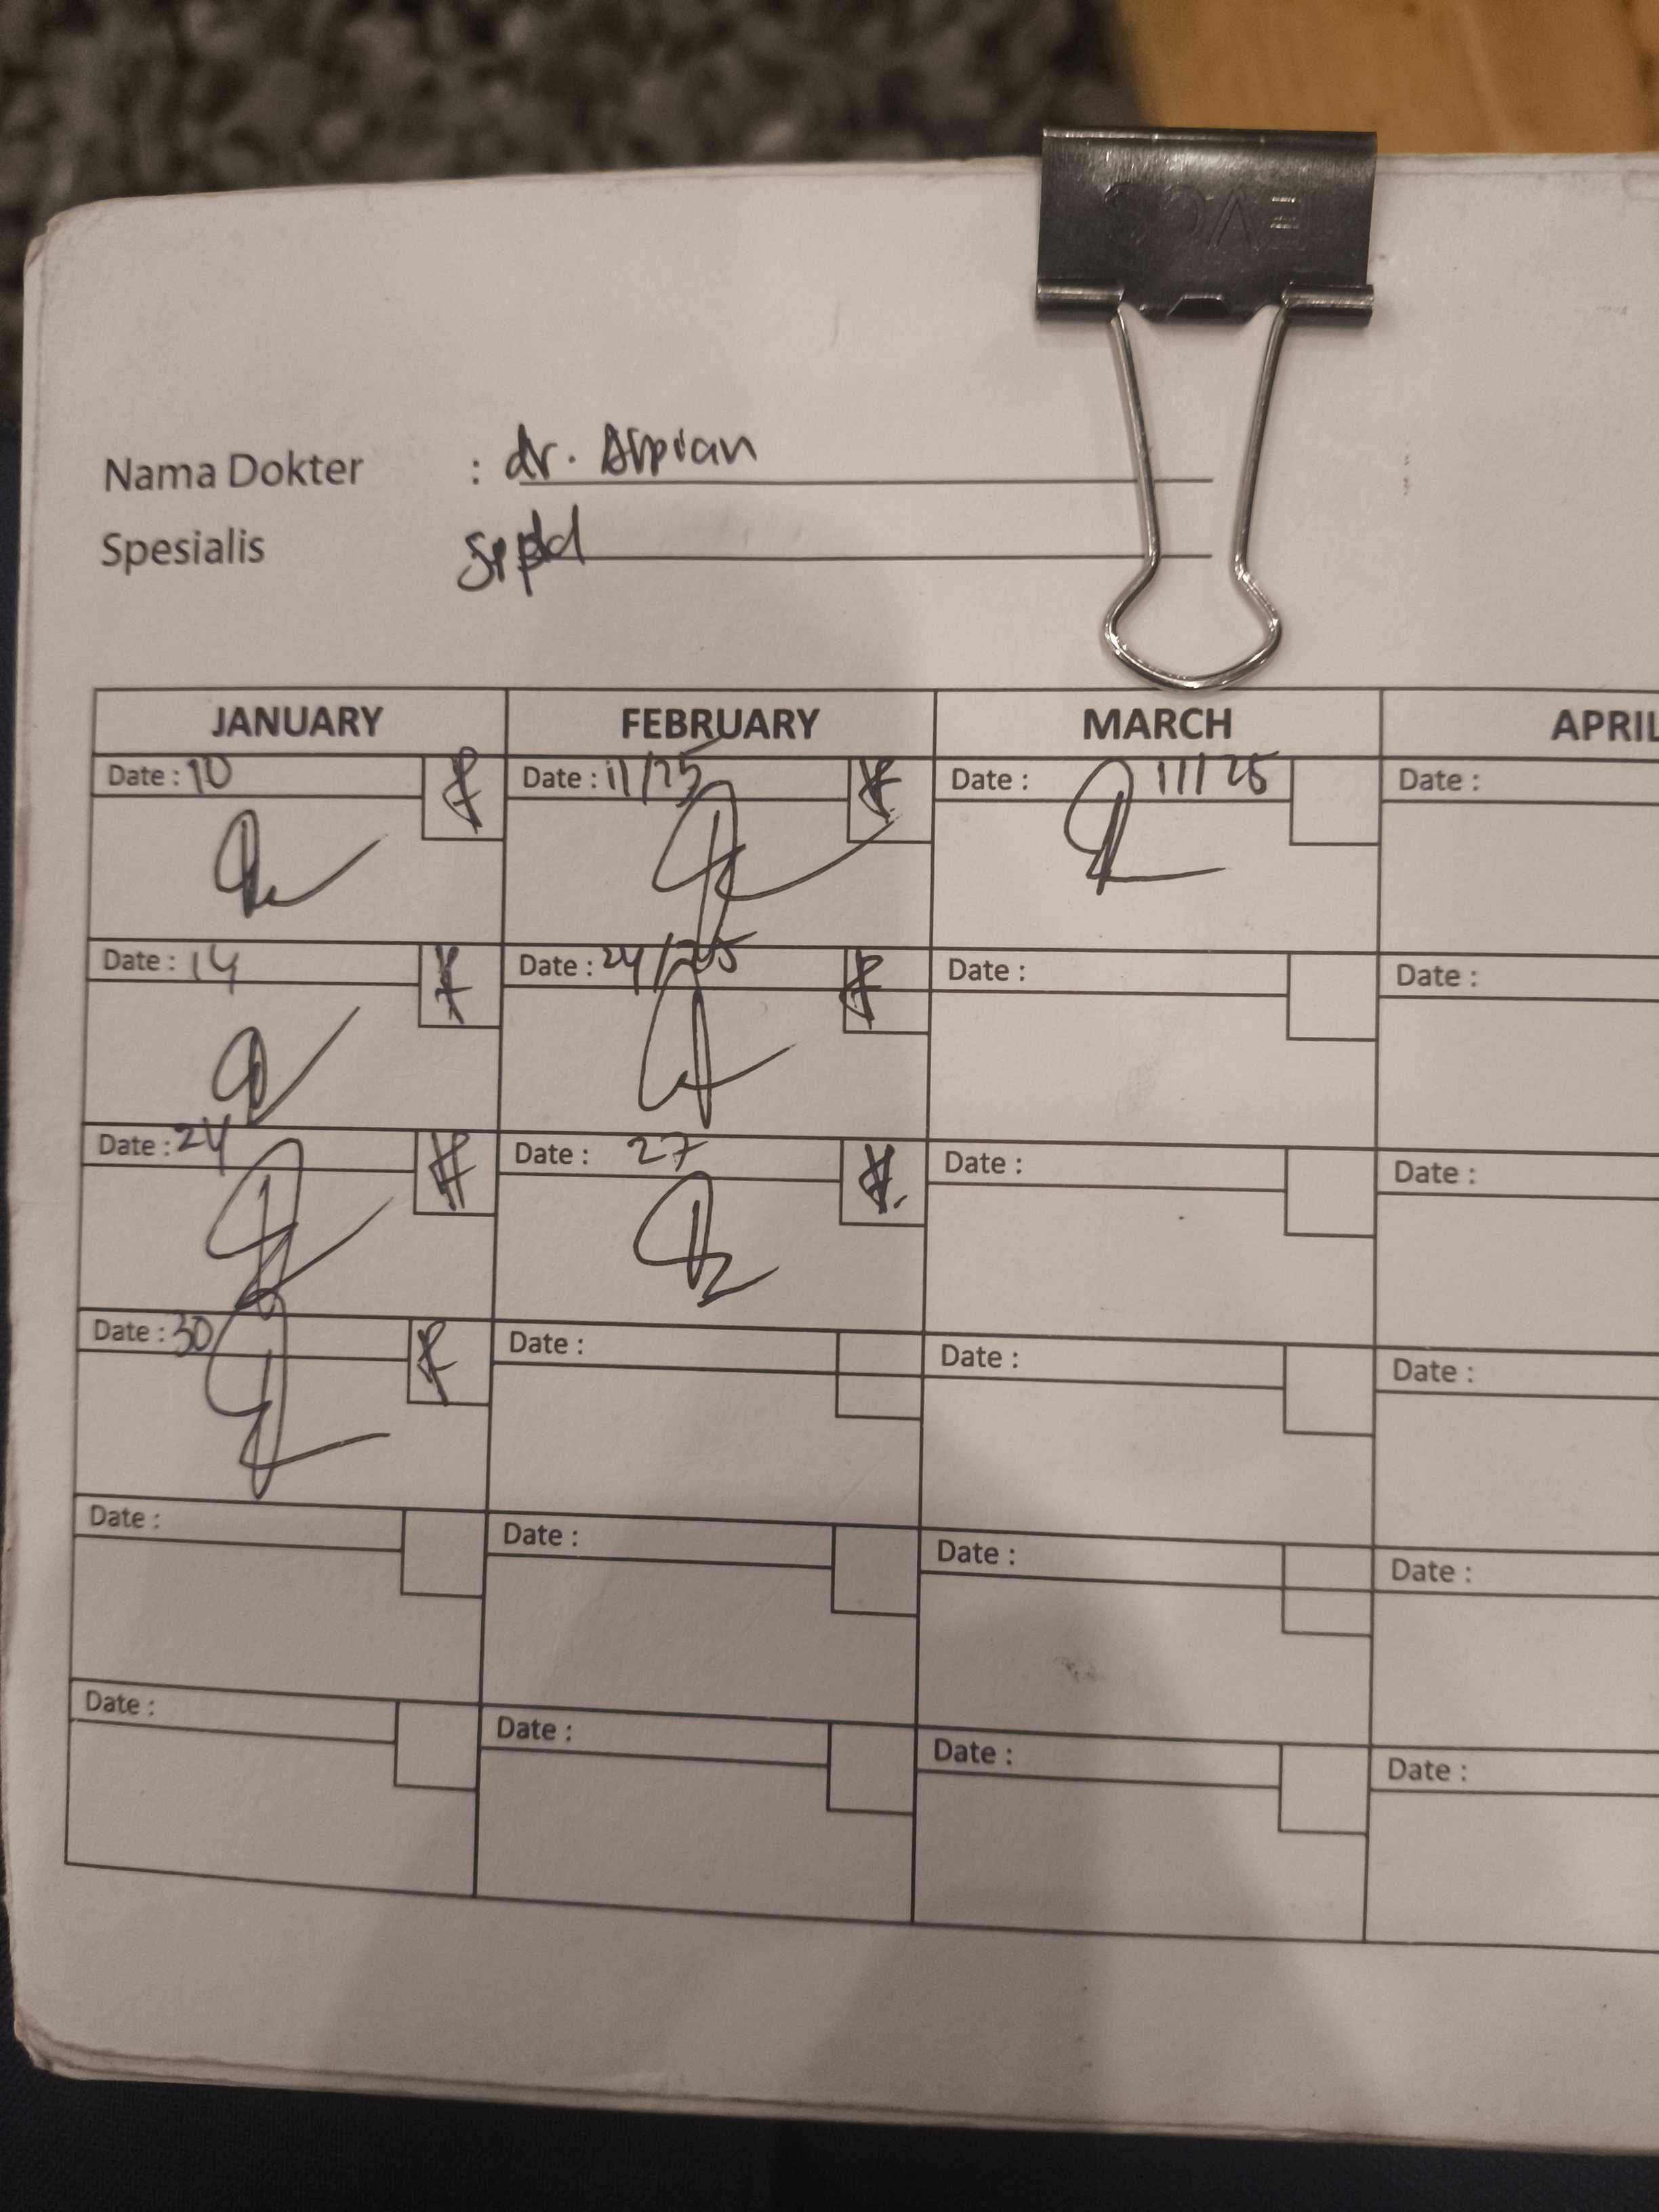 Nama Dokter : dr. Alpian
Spesialis SpPd
JANUARY FEBRUARY MARCH APRIL
Date : 10 Date : 11/25 Date : 11/25 Date :
Date : 14 Date : 24/25 Date : Date :
Date : 24 Date : 27 Date : Date :
Date : 30 Date : Date : Date :
Date : Date : Date : Date :
Date : Date : Date : Date :